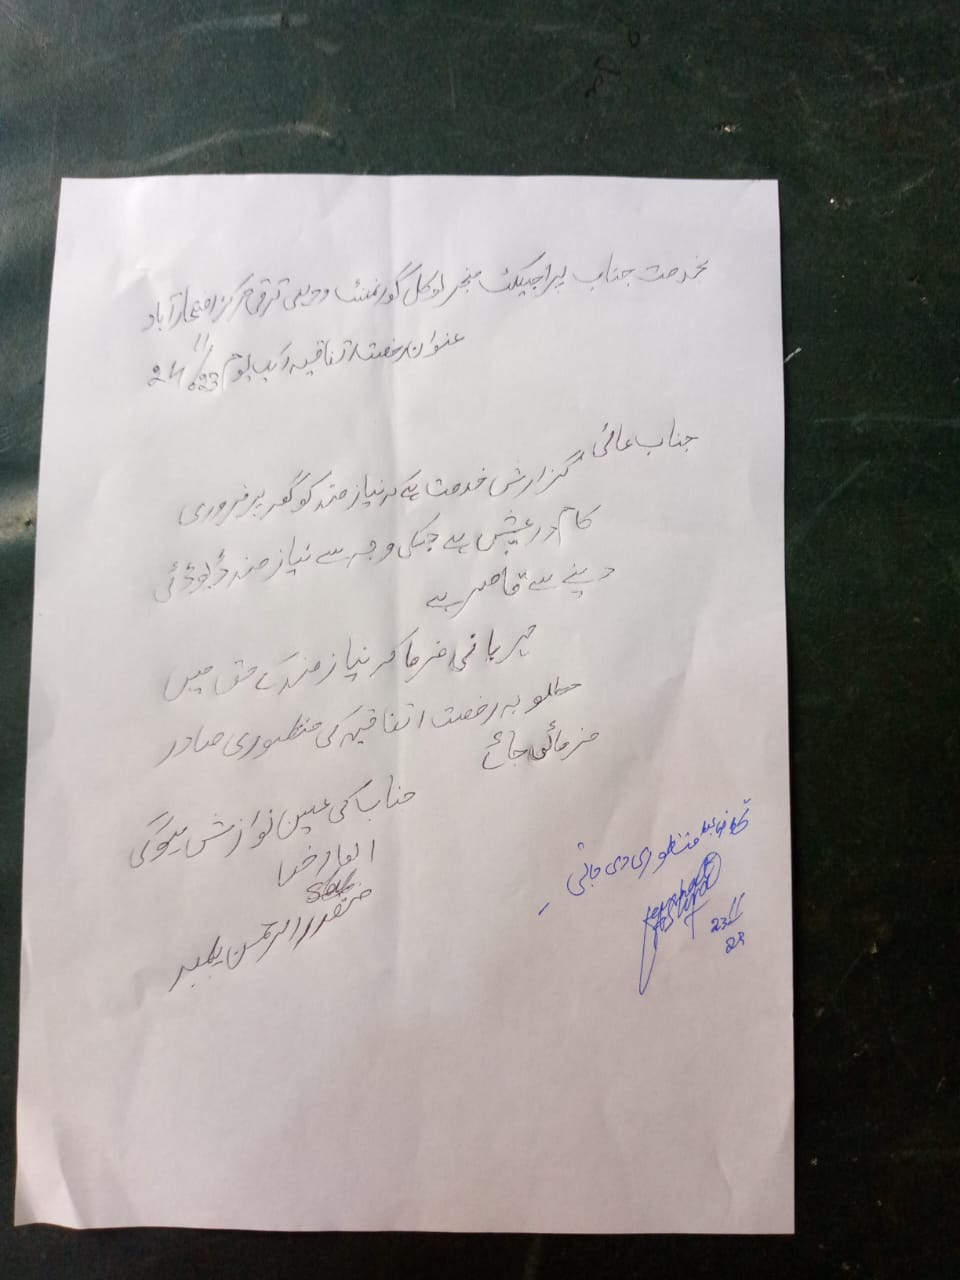 بخدمت جناب پراجیکٹ منیجر لوکل گورنمنٹ و دیہی ترقی مرکز افتخار آباد
عنوان رخصت اتفاقیہ ایک یوم 24/11/023
جناب عالی
گزارش خدمت ہے کہ نیاز مند کو گھر پر ضروری
کام درپیش ہے جسکی وجہ سے نیاز مند ڈیوٹی
دینے سے قاصر ہے
مہربانی فرما کر نیاز مند کے حق میں
مطلوبہ رخصت اتفاقیہ کی منظوری صادر
فرمائی جائے
جناب کی عین نوازش ہوگی
العارض
الرحمن بلمبر
منظوری دی جاتی
23/11
23